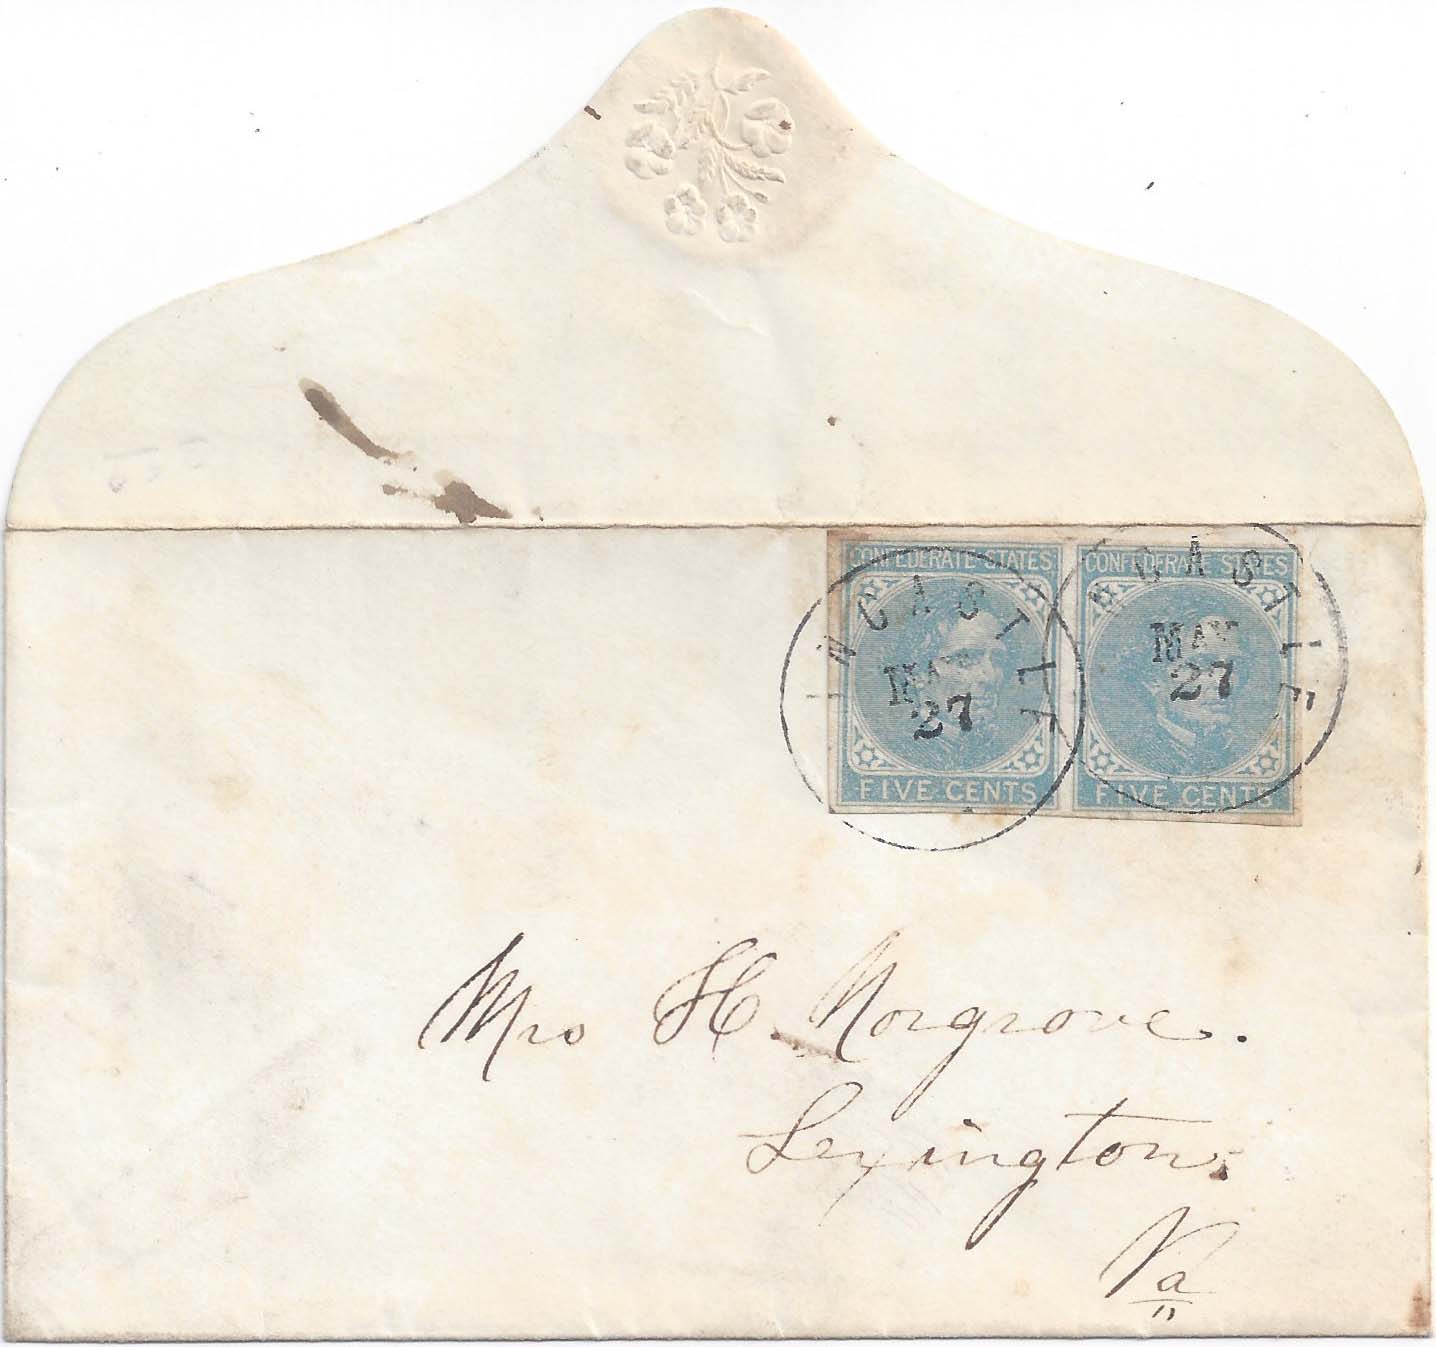 CONFEDERATE STATES CONFEDERATE STATES
INCASTLE NCASTLE
MAY MAY
27 27
FIVE CENTS FIVE CENTS
Mrs H. Norgrove.
Lexington,
Va